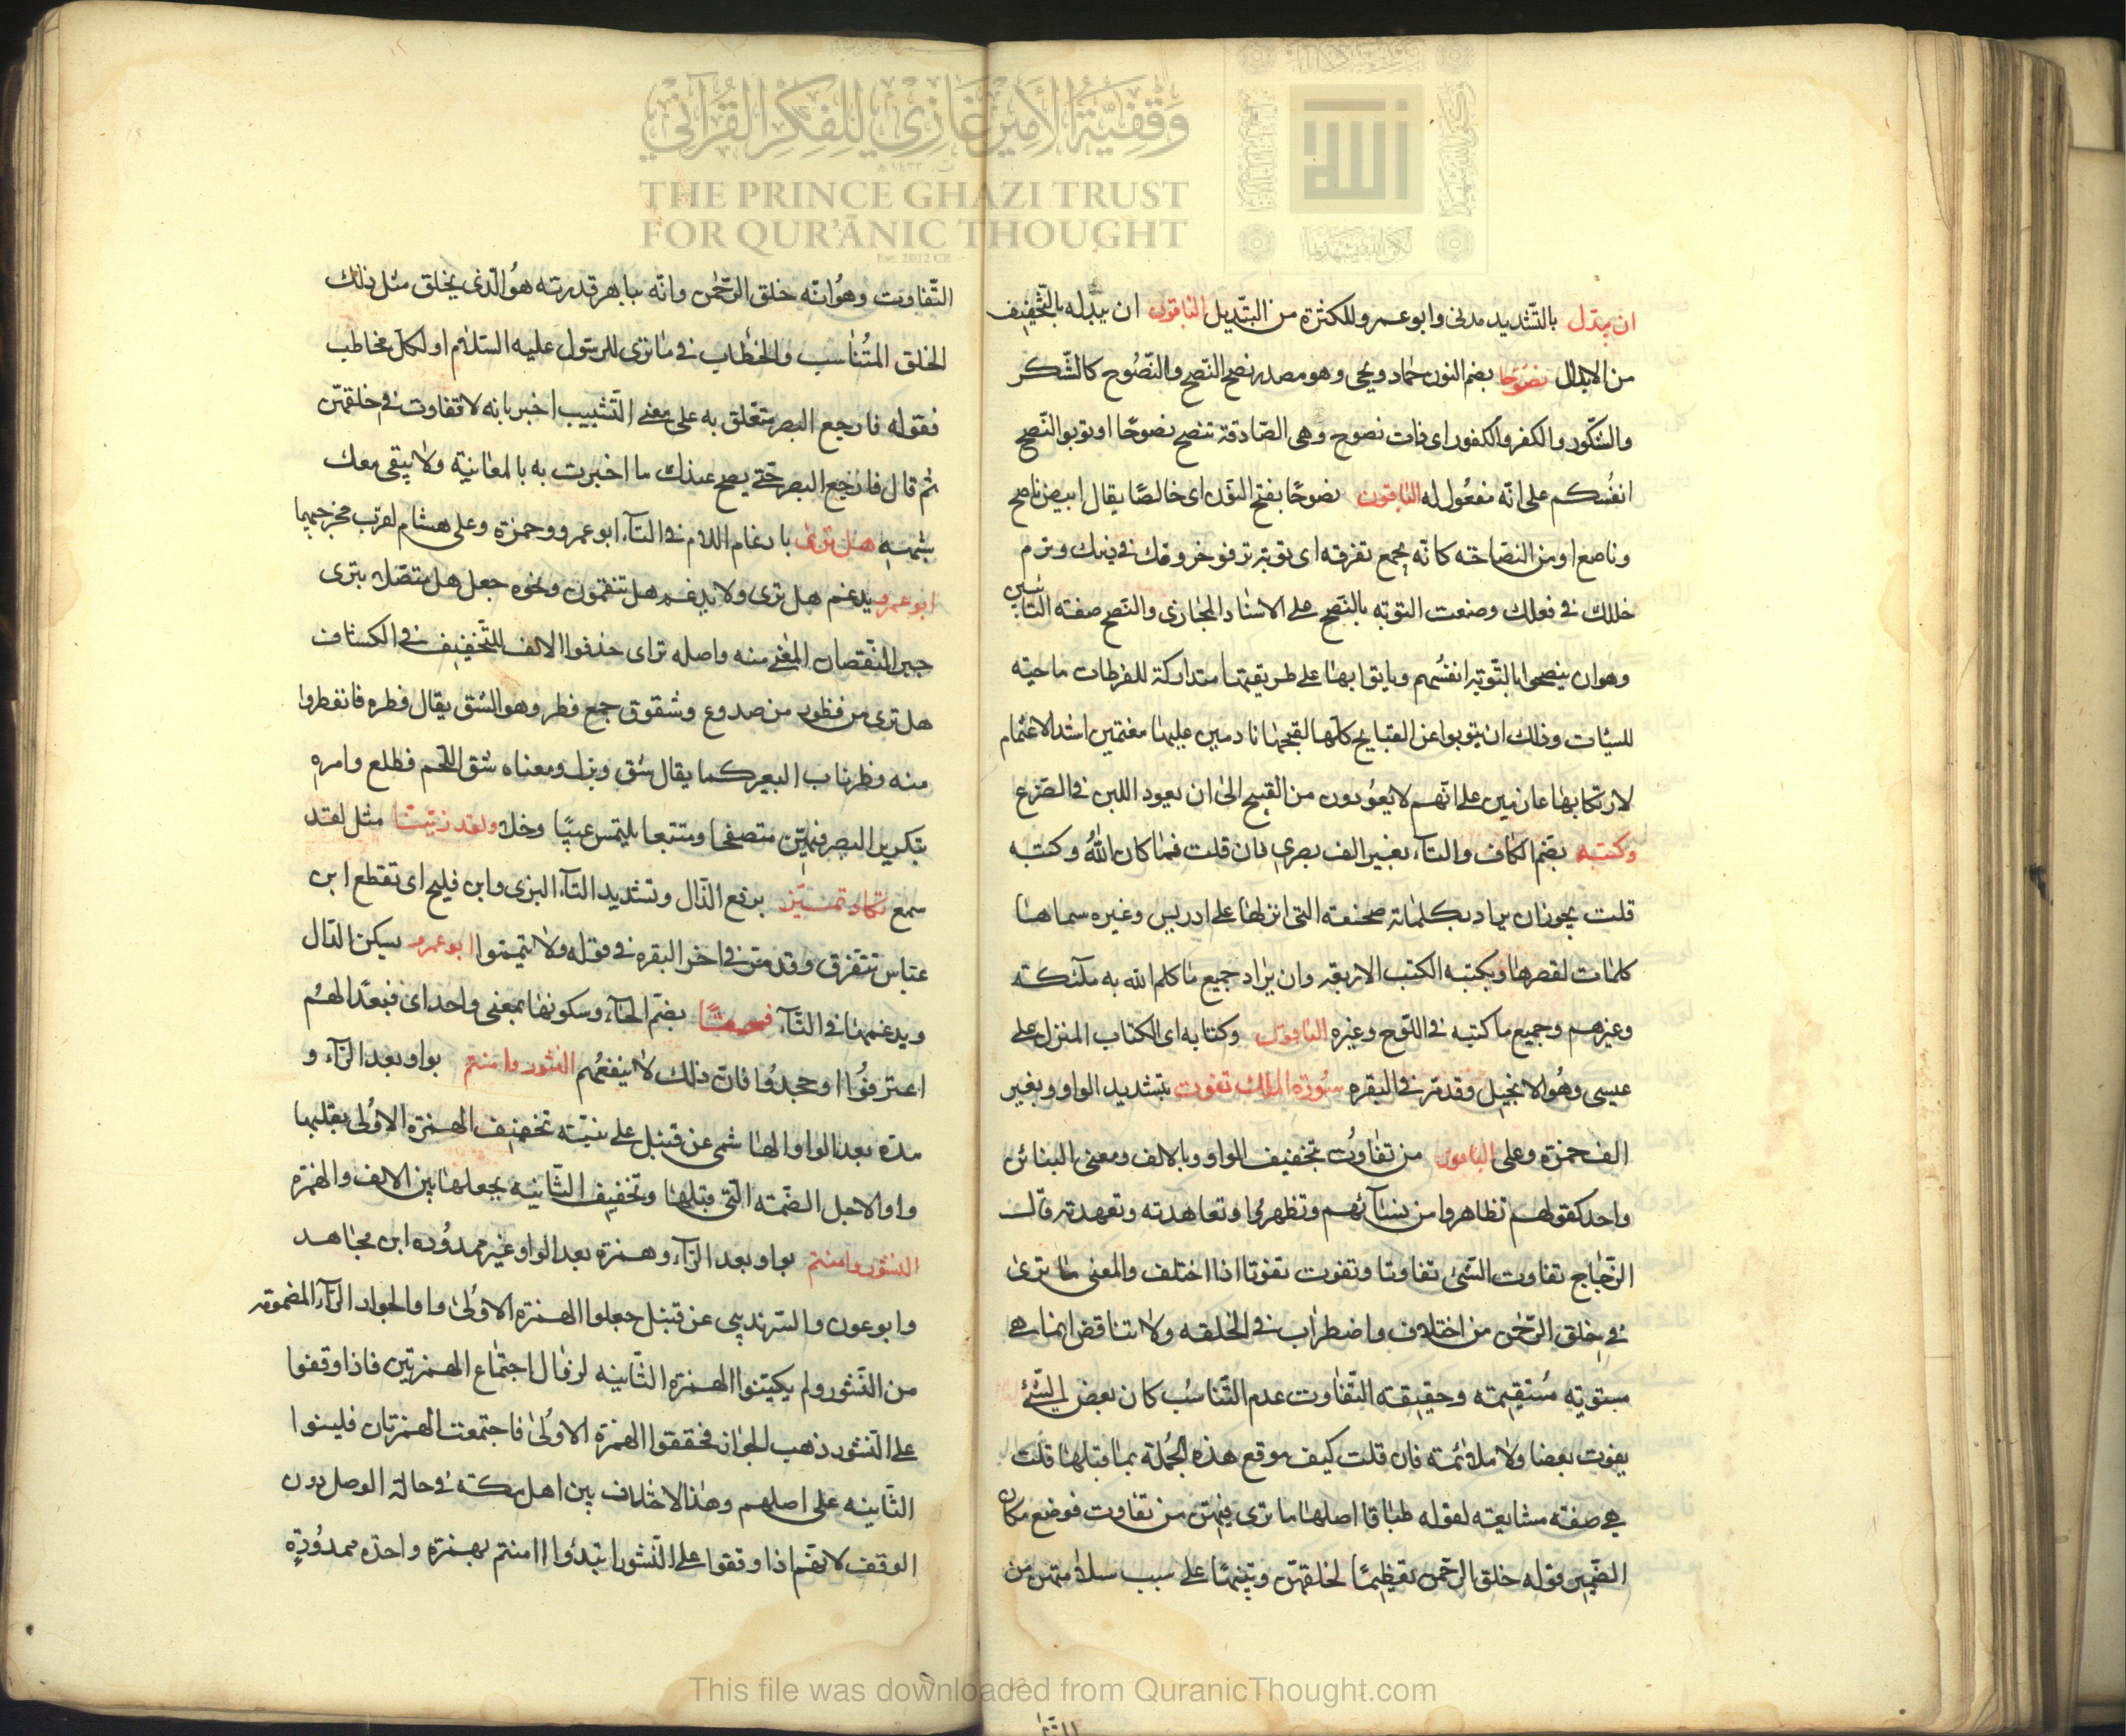 وقفية الأمير غازي للفكر القرآني
THE PRINCE GHAZI TRUST
FOR QUR'ĀNIC THOUGHT
Est. 2012 CE
ان يبدّل بالتّشديد مدنى وابو عمرو للكثرة من التبديل الباقون ان يبدله بالتّخفيف
من الابدال نصُوحًا بضم النون حمّاد ويحيى وهو مصدر نصح النّصح والنّصُوح كالشّكر
والشّكور والكفر والكفور اى ذات نصوح وهى الصّادقة تنصح نصوحًا او توبوا النّصح
انفُسكم على انّه مفعُول له الباقون نصوحًا بفتح النوّن اى خالصًا يقال ابيض ناصح
وناصع او من النصاحته كانّه يجمع تفرقته اى توبة ترفو خروقك فى دينك وترم
خللك فى فعلك وصنعت التوبته بالنّصح على الاسناد المجازى والنّصح صفته التّائبين
وهو ان ينصحوا بالتّوبة انفسُهم وياتوا بها على طريقتها متداركة للفرطات ماحيته
للسيئات وذلك ان يتوبوا عن القبايح كلّها لقبحها نادمين عليها مغتمين اشد الاغتمام
لارتكابها عازمين على انّهم لا يعوُدون من القبيح الى ان يعود اللبن فى الضّرع
وكتبه بضّم الكاف والتاء بغير الف بصرى فان قلت فما كان اللهُ وكتبه
قلت يجوز ان يراد بكلماته صحفته التى انزلها على ادريس وغيره سماها
كلمات لقصرها وبكتبه الكتب الاربعة وان يراد جميع ما كلم الله به ملئكته
وغيرهم وجميع ما كتبه فى اللّوح وغيره الباقون وكتابه اى الكتاب المنزل على
عيسى وهُو الانجيل وقد مرّ فى البقره سُورة الملك تفوت بتشديد الواو وبغير
الف حمزة وعلى الباقون من تفاوُت بتخفيف الواو وبالالف ومعنى البنائن
واحد كقولهم تظاهروا من نسآئهم وتظهروا وتعاهدته وتعهدته قال
الزّجّاج تفاوت الشّئ تفاوتا وتفوت تفوتا اذا اختلف والمعنى ما ترى
فى خلق الرّحمن من اختلاف واضطراب فى الخلقه ولا تناقض انما هى
مستويته مُستقيمته وحقيقته التّفاوت عدم التّناسُب كان بعض الشّئ
يفوت بعضا ولا ملائمته فان قلت كيف موقع هذه الجُملة بما قبلها قلت
هى صفته مشايعته لقوله طباقا اصلها ما ترى فيهنّ من تفاوت فوضع مكان
الضّمير قوله خلق الرّحمن تعظيمًا لخلقهنّ وتنبيهًا على سبب سلامتهن من
التّفاوت وهوُ انّه خلق الرّحمن وانّه بباهر قدرته هوُ الّذى يخلق مثل ذلك
الخلق المتُناسب والخطاب فى ما ترى للرسُول عليه السّلام او لكلّ مخاطب
فقوله فارجع البصر متعّلق به على معنى التّسبيب اخبر بانه لا تفاوت فى خلقهنّ
ثم قال فارجع البصر حتّى يصح عندك ما اخبرت به بالمعاينة ولا يبقى معك
شبهته هل ترى بادغام اللام فى التآء ابو عمرو وحمزة وعلى هشام لقرب مخرجيها
ابو عمرو يدغم هل ترى ولا يدغم هل تنقمون ونحوه جعل هل متصّله بترى
جبر النّقصان المغنى منه واصله تراى حذفوا الالف للتّخفيف فى الكشاف
هل ترى من فطور من صدوع وشقوق جمع فطر وهو الشق يقال فطره فانفطروا
منه فطر ناب البعير كما يقال شق وبزل ومعناه شق اللّحم فطلع وامره
بتكرير البصر فيهنّ متصفحا ومتتبعا يلتمس عيبًا وخللا ولقد زيّنّا مثل لقد
سمع تكاد تميّز برفع الدّال وتشديد التّآء البزى وابن فليح اى تقطع ابن
عبّاس تتفرق وقد مرّ فى اخر البقره فى قوله ولا تيمّموا ابو عمرو يسكن الدّال
ويدغمها فى التّآء فسحقًا بضّم الحآء وسكونها بمعنى واحد اى فبعدًا لهُم
اعترفوُا او جحدُوا فانّ ذلك لا ينفعُهم النشور وامنتم بواو بعد الرّآء و
مدّه بعد الواو الهاشمى عن قنبل على نيّته تخفيف الهمزة الاوُلى بقلبها
واوا لاجل الضّمته الّتى قبلها وتخفيف الثّانيه بجعلها بين الالف والهمزة
النشور وامنتم بواو بعد الرّآء وهمزة بعد الواو غير ممدوُده ابن مجاهد
وابو عون والسّرنديبى عن قنبل جعلوا الهمزة الاوُلى واوا لجوار الرّآء المضموته
من النّشور ولم يليّنوا الهمزة الثّانيه لزوال اجتماع الهمزتين فاذا وقفوا
على النّشور ذهب الجوار فحققوا الهمزة الاوُلى فاجتمعت الهمزتان فلينوا
الثّانيه على اصلهم وهذا الاختلاف بين اهل مكته فى حالة الوصل دون
الوقف لانّهم اذا وقفوا على النّشور ابتدؤا اامنتم بهمزة واحدّه ممدوُدةٍ
This file was downloaded from QuranicThought.com